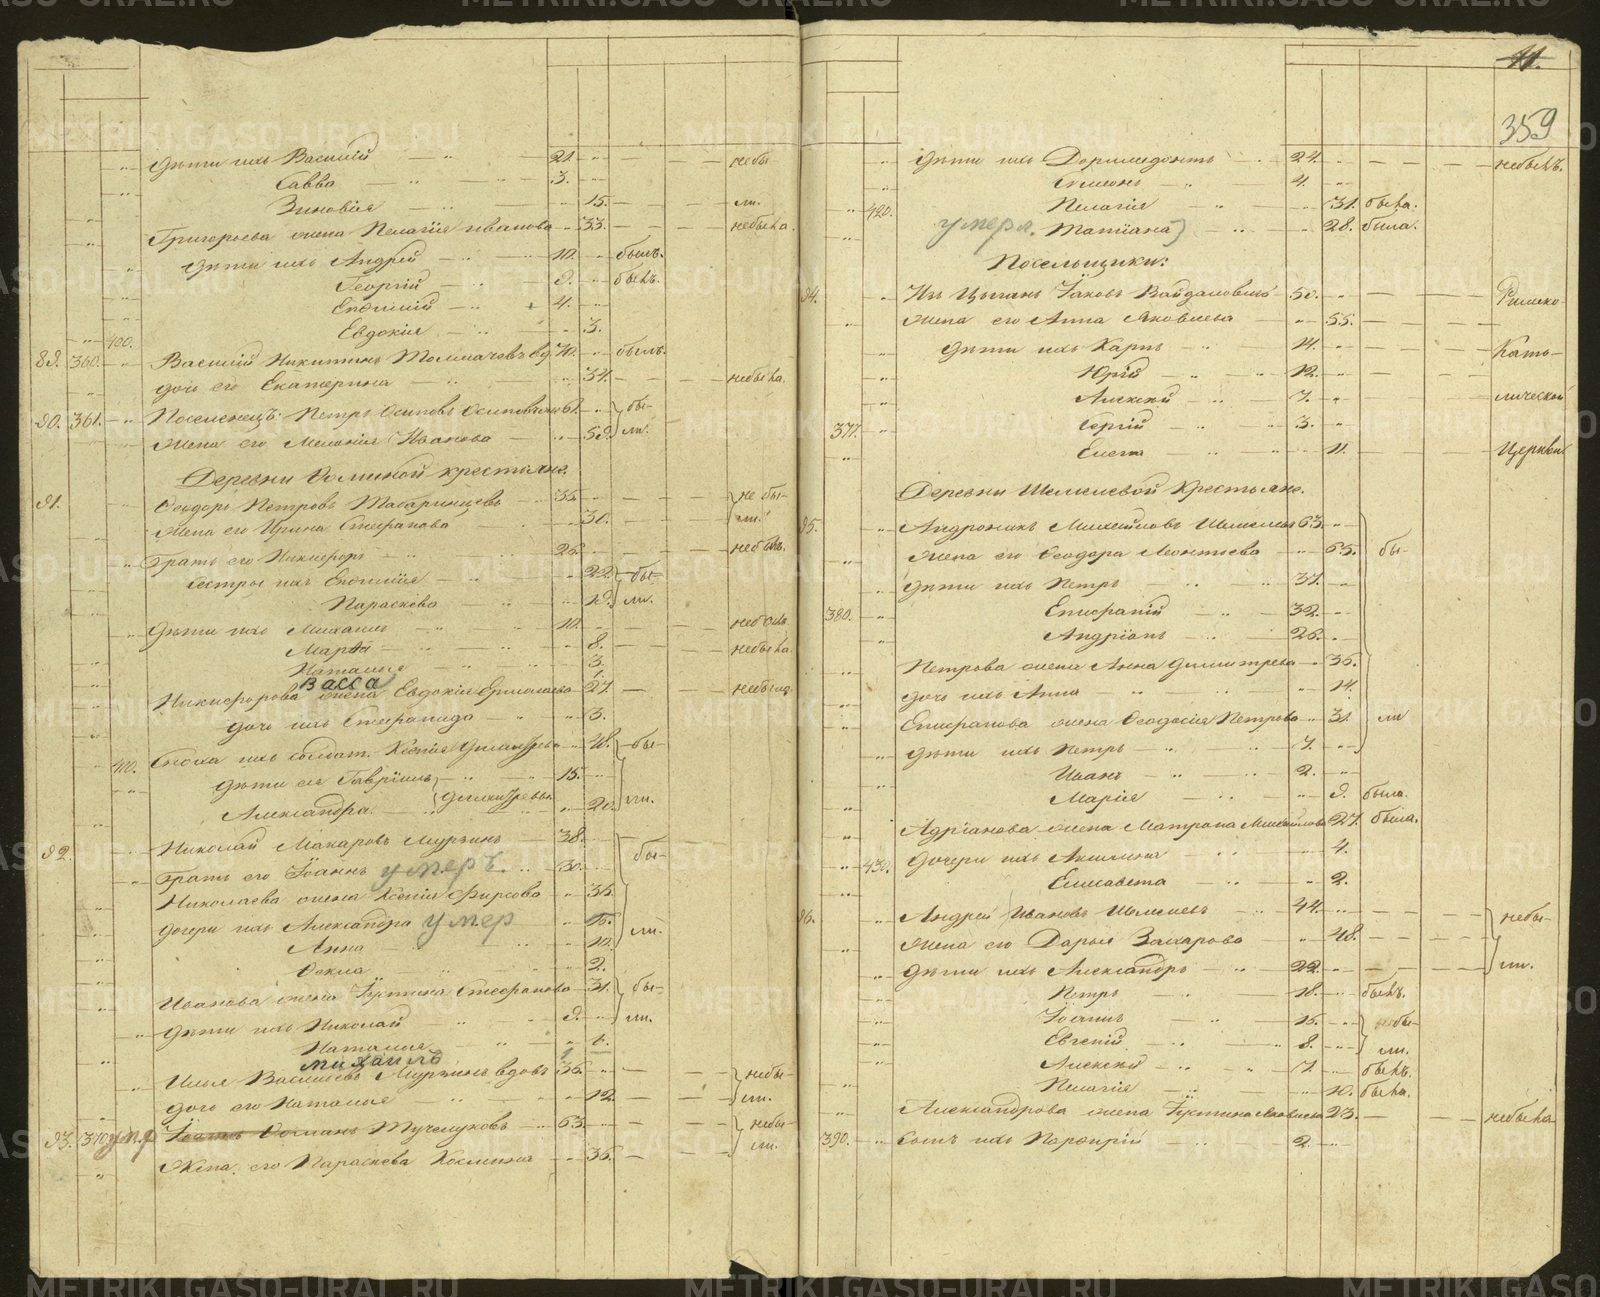 дѣти ихъ Василій — " — 21. " — — — небы
Савва — " — 3. "
Зиновія — " 15. — — — ли.
Григорьева жена Пелагія Иванова " 33. — — — небыла.
дѣти ихъ Андрей — " — 10. " былъ.
Георгій — " — 9. " былъ.
Евфимій — " 4. "
400. Евдокія — " " 3.
89. 360. Василій Никитинъ Толмачовъ вд. 70. " былъ.
дочь его Екатерина " 34. — — — небыла.
90. 361. Поселенецъ: Петръ Осиповъ 61. " бы-
Жена его Меланія Иванова " 59. ли.
Деревни Фоминой крестьяне.
91. Феодоръ Петровъ Табаринцевъ 35. — — — не бы-
Жена его Ирина Стефанова " 30. ли.
Братъ его Никифоръ 26. — — — небылъ.
Сестры ихъ Евфимія " 22. бы-
Параскева " 19. ли.
дѣти ихъ Михаилъ 10. небылъ
Марфа " 8. небыла
Наталья " 3.
Васса
Никифорова жена Евдокія Ермолаева 27. — небыла.
дочь ихъ Стефанида " 3.
410. Сноха ихъ солдат. Ксенія Димитрева " 48. бы-
дѣти ея Гавріилъ 15. "
Александра Димитревы " 20. ли.
92. Николай Макаровъ Мурзинъ 38.
Братъ его Іоаннъ умеръ. 30. бы-
Николаева жена Ксенія Фирсова " 35.
дочери ихъ Александра умер " 15. ли.
Анна " 10.
Фекла " 2.
Иванова жена Іустина Стефанова 31. бы-
дѣти ихъ Николай 9. " ли.
Наталия
Михаилъ
Илья Васильевъ Мурзинъ вдовъ 36. — — небы-
дочь его Наталья " 12. — — ли.
93. 370 ум.р Фоминъ Тучемуковъ — 63. — — небы-
Жена его Параскева Косьмина " 36. — — ли.
11.
359
дѣти ихъ Доримедонтъ " 24. — — — небылъ.
Симеонъ " 4. "
420. Пелагія " 31. была.
умерл. Татіана " 28. была.
Посельщики:
94. Изъ Цыганъ Іаковъ 50. " — — — Римско-
Жена его Анна Яковлева " 55. — — —
дѣти ихъ Карпъ 14. " — — — Като-
Юрій 12. "
Алексѣй 7. " лической
377. Сергій 3. "
Елена " 11. — — — Церкви.
Деревни Шемелевой Крестьяне.
95. Андроникъ Михайловъ Шемелевъ 63. "
Жена его Феодора Леонтьева " 65. бы-
дѣти ихъ Петръ 37. "
380. Епифаній 32. "
Андріанъ 26. "
Петрова жена Анна Димитрева " 36.
дочь ихъ Анна " 14.
Епифанова жена Феодосія Петрова " 31. ли
дѣти ихъ Петръ 7. "
Иванъ 2. "
Марія " 9. была.
Адріанова жена Матрона Михайлова 27. была.
430. дочери ихъ Акилина " 4.
Елисавета " 2.
96. Андрей Ивановъ Шемелевъ 44. " — — небы-
Жена его Дарья Захарова " 48. — —
дѣти ихъ Александръ 22. " — — — ли.
Петръ 18. былъ.
Іоаннъ 15. " небы-
Евгеній 8. " ли.
Алексѣй 7. " былъ.
Пелагія " 10. была.
Александрова жена Іустина Яковлева 23. — — небыла
390. Сынъ ихъ Порфирій 2. "